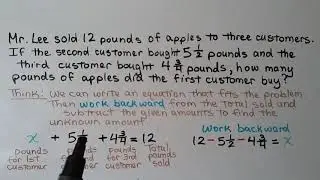 Mr. Lee sold 12 pounds of apples to three customers.
If the second customer bought 5 1/2 pounds and the
third customer bought 4 3/4 pounds, how many
pounds of apples did the first customer buy?
Think: We can write an equation that fits the problem
Then work backward from the total sold and
subtract the given amounts to find the
unknown amount
x + 5 1/2 + 4 3/4 = 12
pounds for 1st customer
pounds for customer
pounds for 3rd customer
Total pounds sold
work backward
12 - 5 1/2 - 4 3/4 = x